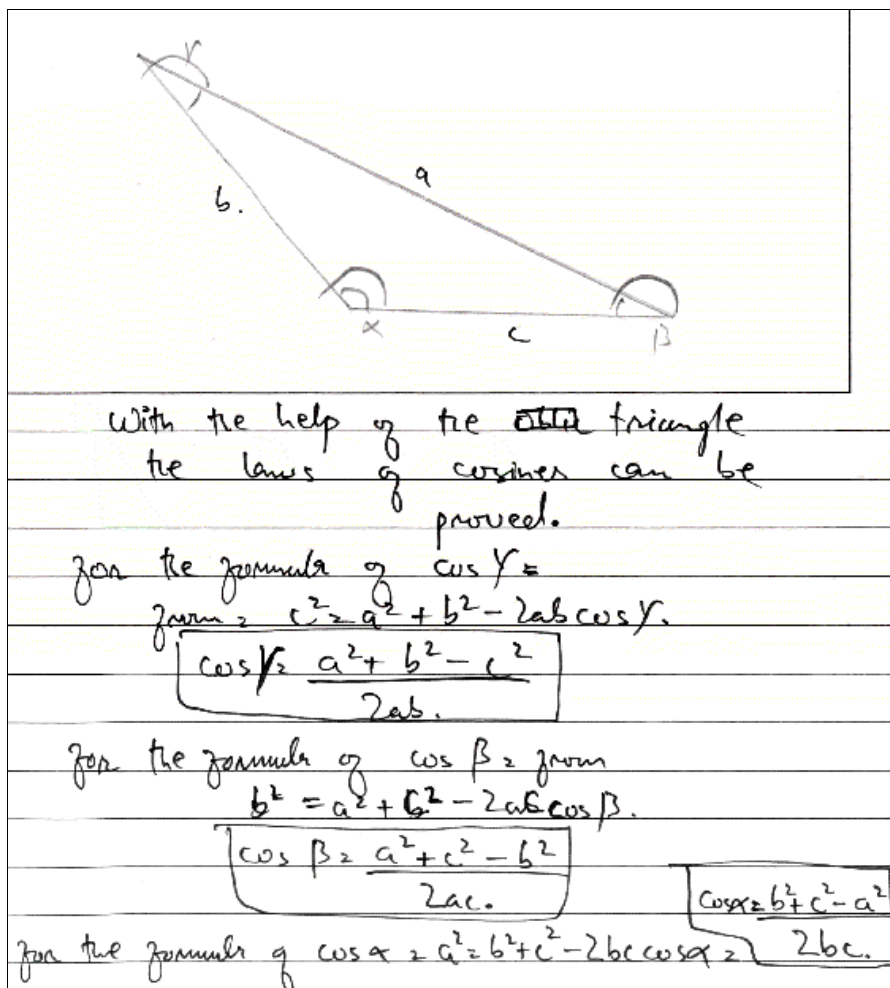 γ
a
b.
α
c
β
With the help of the triangle
the laws of cosines can be
proved.
for the formula of cos γ =
from = c² = a² + b² - 2ab cos γ.
cos γ = a² + b² - c² / 2ab.
for the formula of cos β = from
b² = a² + c² - 2ac cos β.
cos β = a² + c² - b² / 2ac.
for the formula of cos α = a² = b² + c² - 2bc cos α = cos α = b² + c² - a² / 2bc.